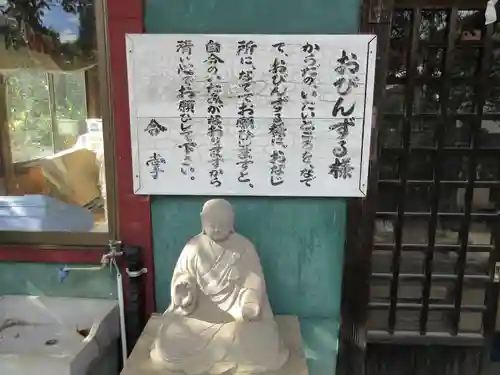 おびんずる様
からだの、いたいところを、なで
て、おびんずる様に、おなじ
所に、なでてお願ひしますと、
自分のいたみが変わりますから
清い心でお願ひして下さい。
合掌